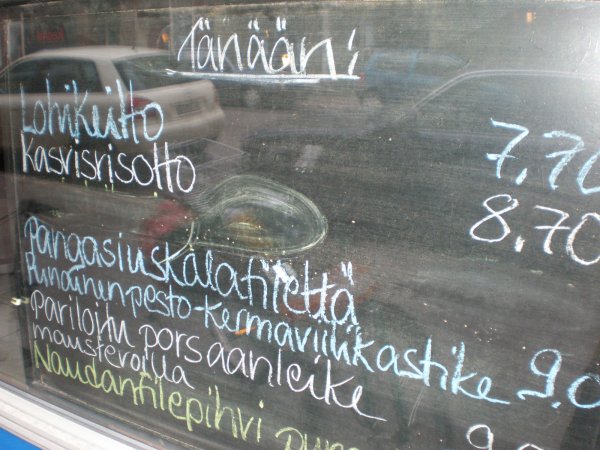 Tänään:
Lohikeitto 7,70
Kasvisrisotto 8,70
pangasiuskalafilettä
Punainenpesto-kermaviilikastike 9,0
pariloitu porsaanleike
maustevoilla
Naudanfilepihvi